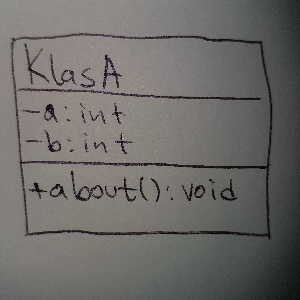 KlasA
-a:int
-b:int
+about():void